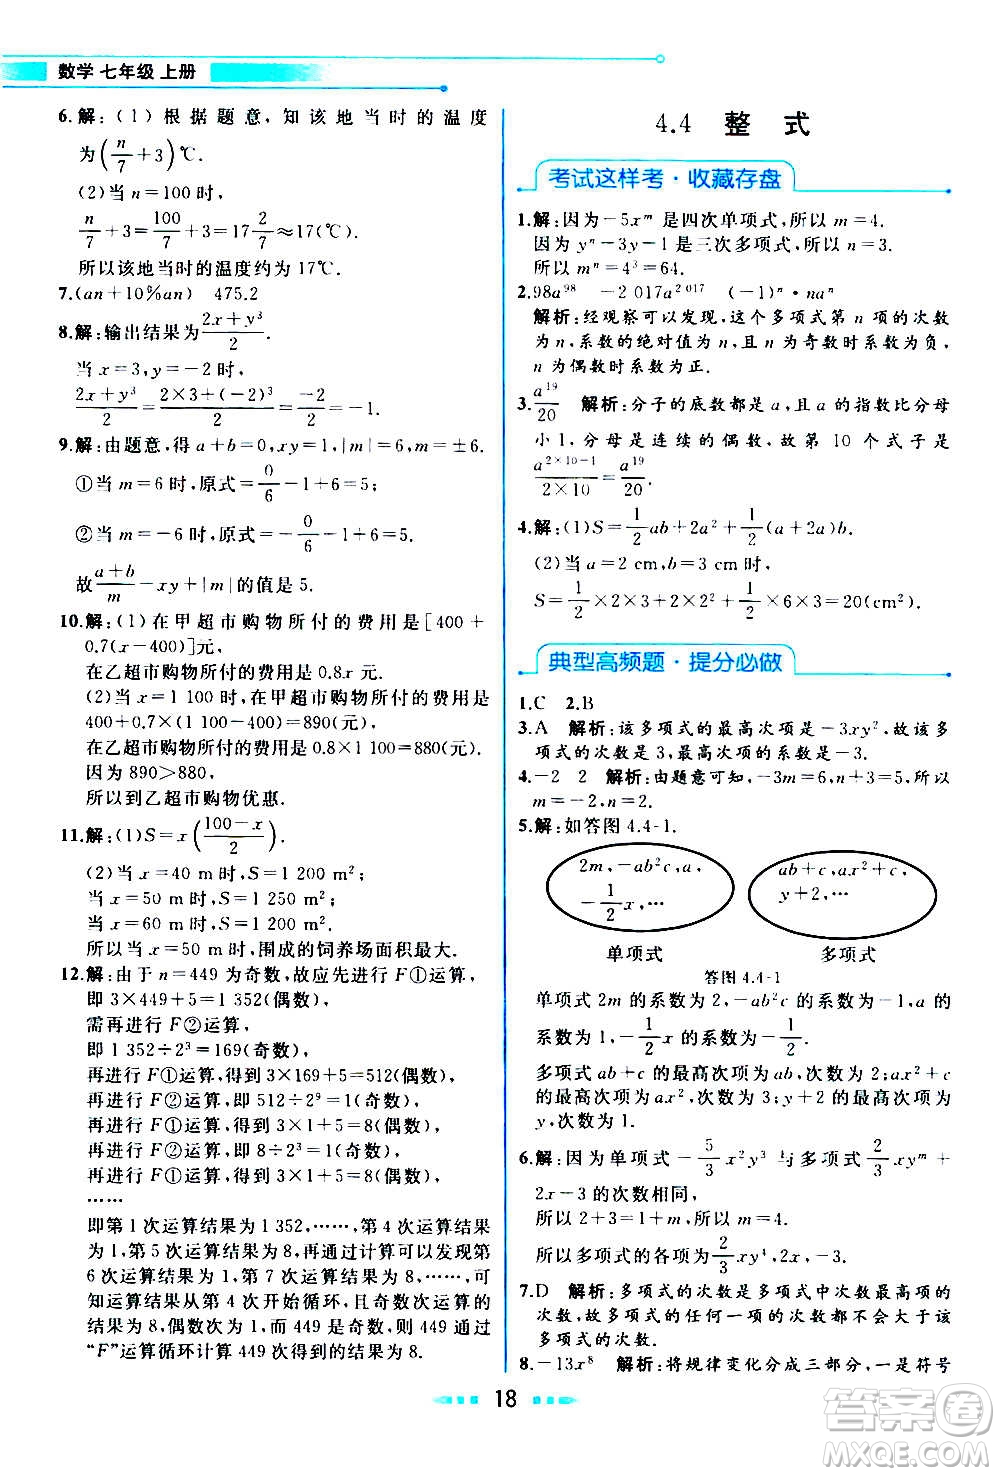 数学 七年级 上册
6.解:(1)根据题意,知该地当时的温度
为(n/7+3)℃.
(2)当 n=100 时,
n/7+3=100/7+3=17 2/7≈17(℃).
所以该地当时的温度约为 17℃.
7.(an+10%an) 475.2
8.解:输出结果为(2x+y³)/2.
当 x=3,y=-2 时,
(2x+y³)/2=(2×3+(-2)³)/2=-2/2=-1.
9.解:由题意,得 a+b=0,xy=1,|m|=6,m=±6.
①当 m=6 时,原式=0/6-1+6=5;
②当 m=-6 时,原式=-0/6-1+6=5.
故(a+b)/m-xy+|m|的值是 5.
10.解:(1)在甲超市购物所付的费用是[400+
0.7(x-400)]元,
在乙超市购物所付的费用是 0.8x 元.
(2)当 x=1 100 时,在甲超市购物所付的费用是
400+0.7×(1 100-400)=890(元),
在乙超市购物所付的费用是 0.8×1 100=880(元).
因为 890>880,
所以到乙超市购物优惠.
11.解:(1)S=x((100-x)/2).
(2)当 x=40 m 时,S=1 200 m²;
当 x=50 m 时,S=1 250 m²;
当 x=60 m 时,S=1 200 m².
所以当 x=50 m 时,围成的饲养场面积最大.
12.解:由于 n=449 为奇数,故应先进行 F①运算,
即 3×449+5=1 352(偶数),
需再进行 F②运算,
即 1 352÷2³=169(奇数),
再进行 F①运算,得到 3×169+5=512(偶数),
再进行 F②运算,即 512÷2⁹=1(奇数),
再进行 F①运算,得到 3×1+5=8(偶数),
再进行 F②运算,即 8÷2³=1(奇数),
再进行 F①运算,得到 3×1+5=8(偶数),
……
即第 1 次运算结果为 1 352,……,第 4 次运算结果
为 1,第 5 次运算结果为 8,再通过计算可以发现第
6 次运算结果为 1,第 7 次运算结果为 8,……,可
知运算从第 4 次开始循环,且奇数次运算的结果
为 8,偶数次为 1,而 449 是奇数,则 449 次这样的
“F”运算循环计算 449 次的结果为 8.
4.4 整式
考试这样考·收藏存盘
1.解:因为-5xᵐ 是四次单项式,所以 m=4.
因为 yⁿ-3y-1 是三次多项式,所以 n=3.
所以 mⁿ=4³=64.
2.98a⁹⁸ -2 017a²⁰¹⁷ (-1)ⁿ·naⁿ
解析:经观察可以发现,这个多项式第 n 项的次数
为 n,系数的绝对值为 n,n 为奇数时系数为负,
n 为偶数时系数为正.
3.a¹⁹/20 解析:分子的底数都是 a,且 a 的指数比分母
小 1,分母是连续的偶数,故第 10 个式子是
a²ˣ¹⁰⁻¹/(2×10)=a¹⁹/20.
4.解:(1)S=1/2ab+2a²+1/2(a+2a)b.
(2)当 a=2 cm,b=3 cm 时,
S=1/2×2×3+2×2²+1/2×6×3=20(cm²).
典型高频题·提分必做
1.C 2.B
3.A 解析:该多项式的最高次项是-3xy²,故该多
项式的次数是 3,最高次项的系数是-3.
4.-2 2 解析:由题意可知,-3m=6,n+3=5,所以
m=-2,n=2.
5.解:如答图 4.4-1.
2m,-ab²c,a,
-1/2x,…
ab+c,ax²+c,
y+2,…
单项式 多项式
答图 4.4-1
单项式 2m 的系数为 2,-ab²c 的系数为-1,a 的
系数为 1,-1/2x 的系数为-1/2.
多项式 ab+c 的最高次项为 ab,次数为 2;ax²+c
的最高次项为 ax²,次数为 3;y+2 的最高次项为
y,次数为 1.
6.解:因为单项式-5/3x²y³ 与多项式 2/3xyᵐ+
2x-3 的次数相同,
所以 2+3=1+m,所以 m=4.
所以多项式的各项为2/3xy⁴,2x,-3.
7.D 解析:多项式的次数是多项式中次数最高项的
次数,故多项式的任何一项的次数都不会大于该
多项式的次数.
8.-13x⁸ 解析:将规律变化分成三部分,一是符号
18
答案圈
MXQE.COM